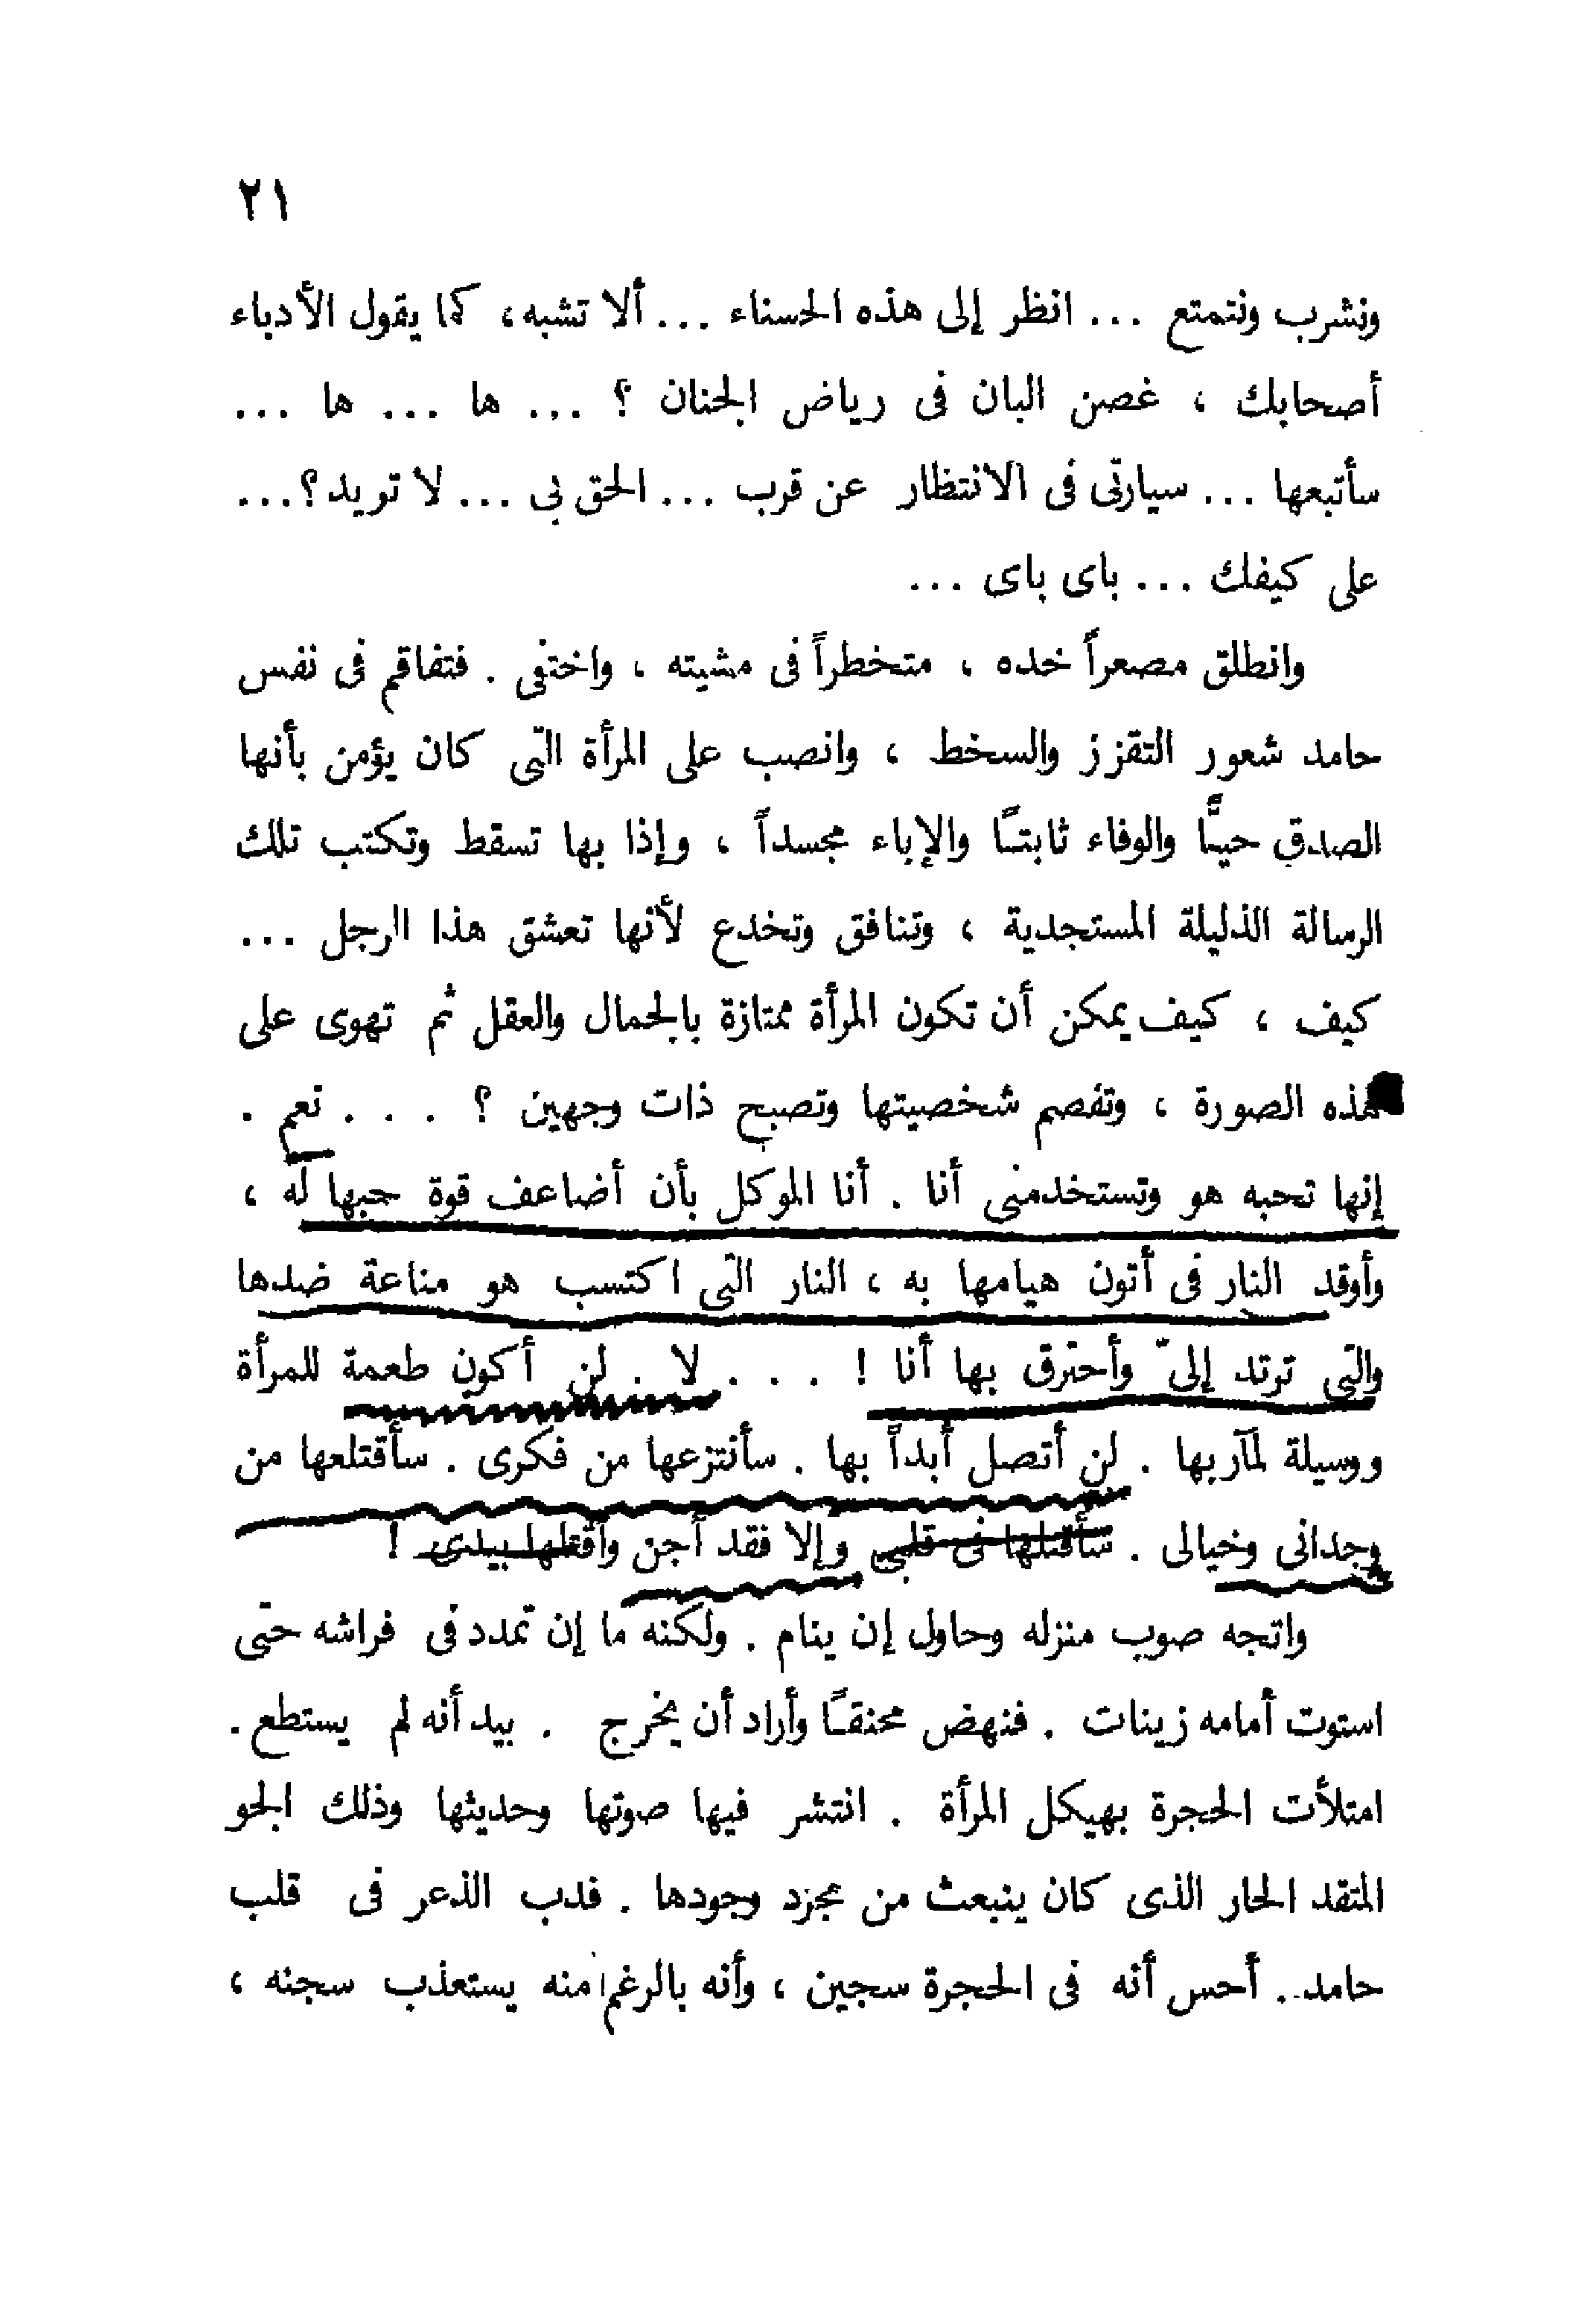 ٢١
ونشرب ونتمتع ... انظر إلى هذه الحسناء ... ألا تشبه ، كما يقول الأدباء
أصحابك ، غصن البان فى رياض الجنان ؟ ... ها ... ها ...
سأتبعها ... سيارتى فى الانتظار عن قرب ... الحق بى ... لا تريد ؟ ...
على كيفك ... باى باى ...
وانطلق مصعراً خده ، متخطراً فى مشيته ، واختفى . فتفاقم فى نفس
حامد شعور التقزز والسخط ، وانصب على المرأة التى كان يؤمن بأنها
الصدق حيًّا والوفاء ثابتًا والإباء مجسداً ، وإذا بها تسقط وتكتب تلك
الرسالة الذليلة المستجدية ، وتنافق وتخدع لأنها تعشق هذا الرجل ...
كيف ، كيف يمكن أن تكون المرأة ممتازة بالجمال والعقل ثم تهوى على
هذه الصورة ، وتفصم شخصيتها وتصبح ذات وجهين ؟ . . . نعم .
إنها تحبه هو وتستخدمنى أنا . أنا الموكل بأن أضاعف قوة حبها له ،
وأوقد النار فى أتون هيامها به ، النار التى اكتسب هو مناعة ضدها
والتى ترتد إلىّ وأحترق بها أنا ! . . . لا . لن أكون طعمة للمرأة
ووسيلة لمآربها . لن أتصل أبداً بها . سأنتزعها من فكرى . سأقتلعها من
وجدانى وخيالى . سأقتلها فى قلبى وإلا فقد أجن وأقتلها بيدى !
واتجه صوب منزله وحاول إن ينام . ولكنه ما إن تمدد فى فراشه حتى
استوت أمامه زينات . فنهض محنقًا وأراد أن يخرج . بيد أنه لم يستطع .
امتلأت الحجرة بهيكل المرأة . انتشر فيها صوتها وحديثها وذلك الجو
المتقد الحار الذى كان ينبعث من مجزد وجودها . فدب الذعر فى قلب
حامد . أحس أنه فى الحجرة سجين ، وأنه بالرغم منه يستعذب سجنه ،